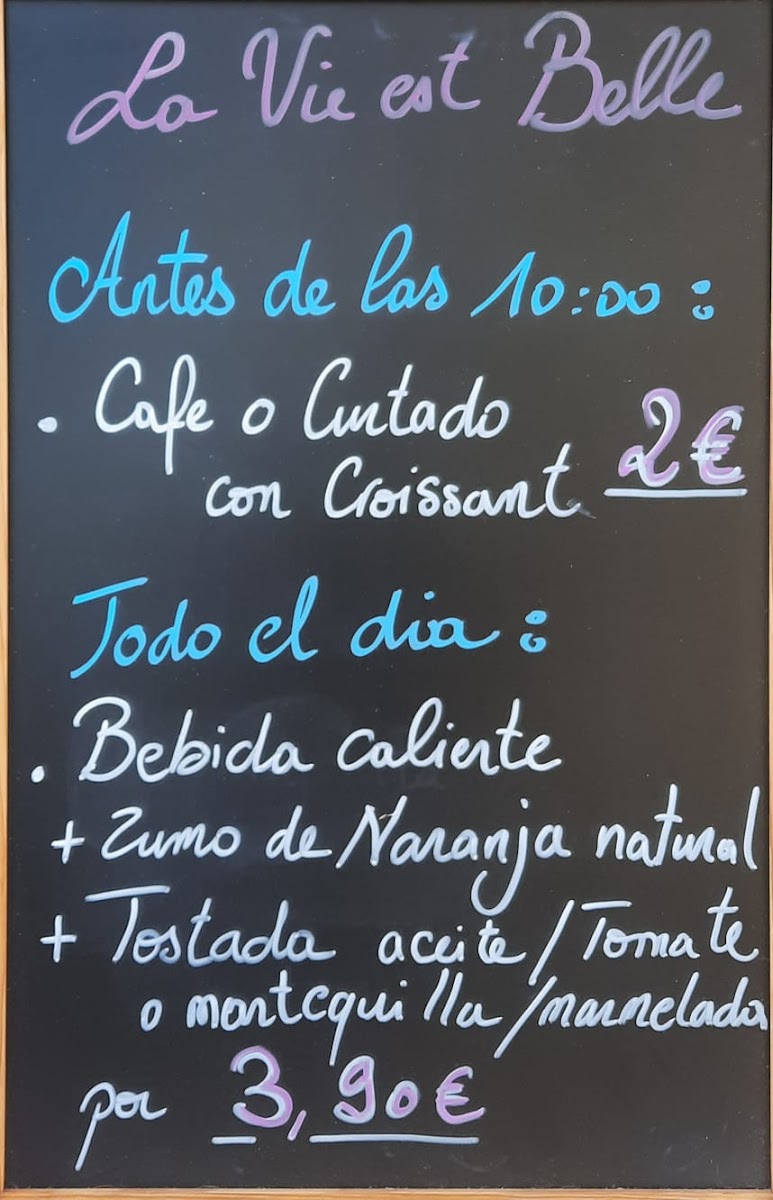 La Vie est Belle
Antes de las 10:00 :
. Cafe o Cortado 2€
con Croissant
Todo el dia :
. Bebida caliente
+ Zumo de Naranja natural
+ Tostada aceite/Tomate
o mantequilla/marmelada
por 3,90€